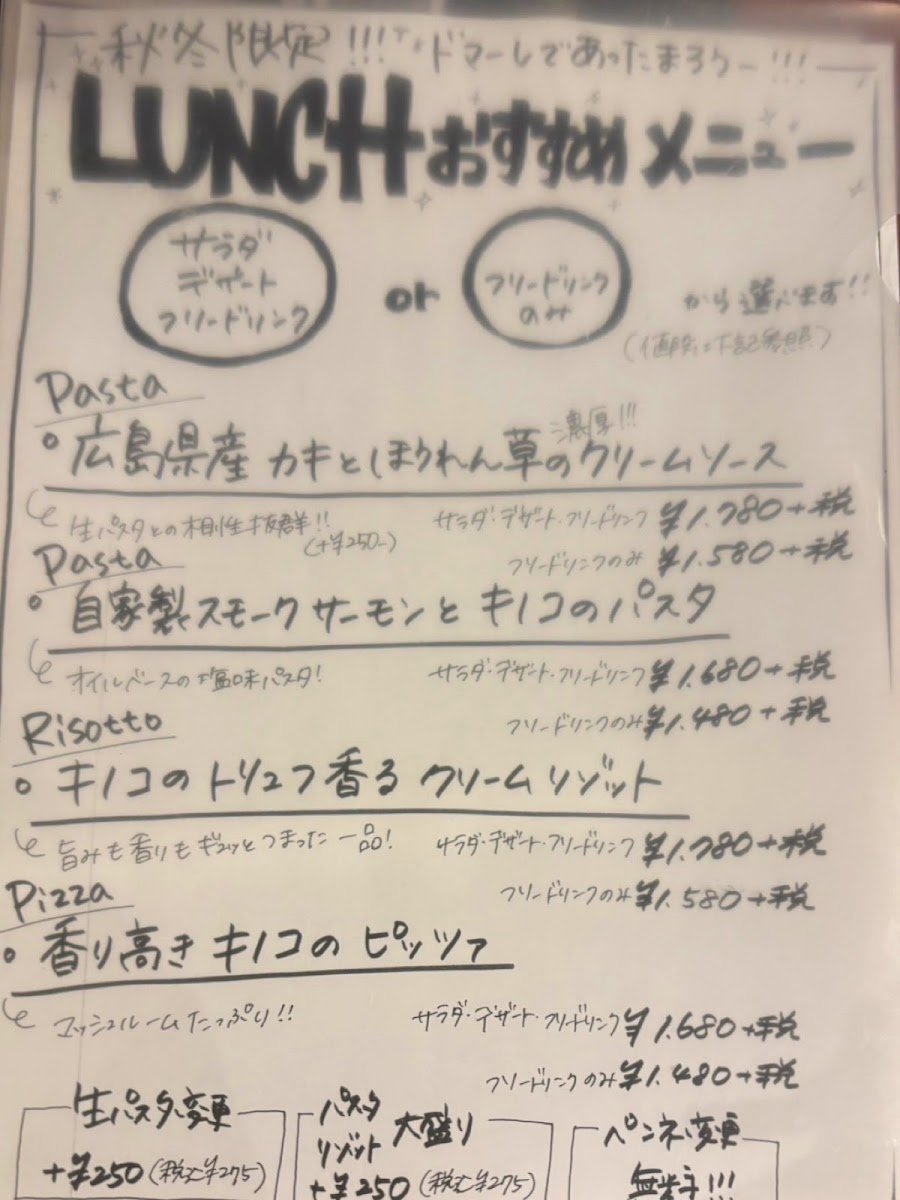 秋冬限定!!! ドマーレであったまろうー!!!
LUNCHおすすめメニュー
サラダ
デザート
フリードリンク
or
フリードリンク
のみ
から選べます!!
(値段は下記参照)
Pasta
濃厚!!!
・広島県産カキとほうれん草のクリームソース
生パスタとの相性抜群!! サラダ・デザート・フリードリンク ¥1.780+税
(+¥250-) フリードリンクのみ ¥1.580+税
Pasta
・自家製スモークサーモンとキノコのパスタ
オイルベースの塩味パスタ! サラダ・デザート・フリードリンク ¥1.680+税
フリードリンクのみ ¥1.480+税
Risotto
・キノコのトリュフ香るクリームリゾット
旨みも香りもギュッとつまった一品! サラダ・デザート・フリードリンク ¥1.780+税
フリードリンクのみ ¥1.580+税
Pizza
・香り高きキノコのピッツァ
マッシュルームたっぷり!! サラダ・デザート・フリードリンク ¥1.680+税
フリードリンクのみ ¥1.480+税
生パスタ変更
+¥250(税込¥275)
パスタ
リゾット 大盛り
+¥250(税込¥275)
ペンネ変更
無料!!!